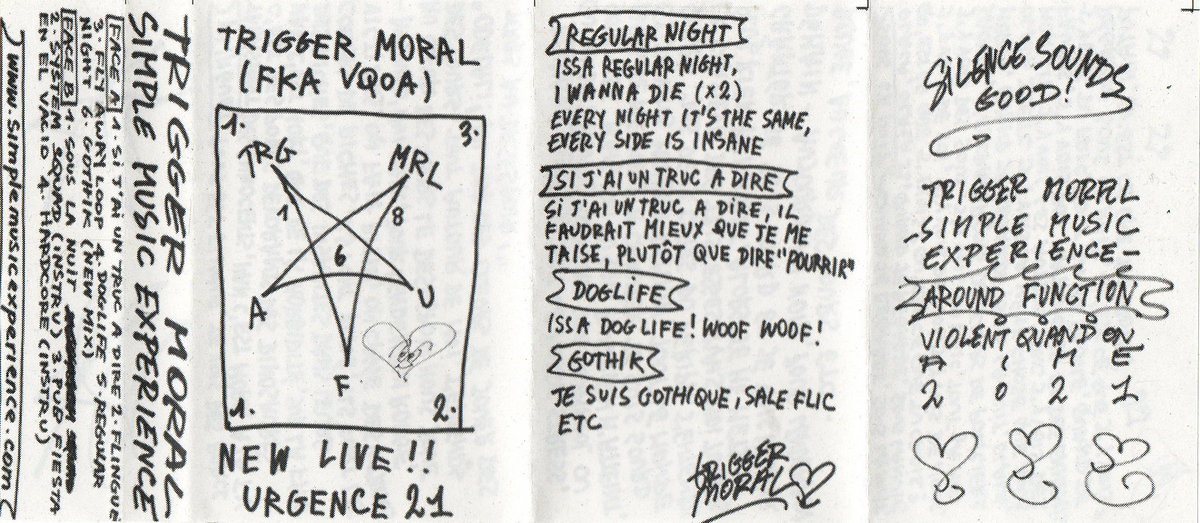 TRIGGER MORAL
SIMPLE MUSIC EXPERIENCE
FACE A 1. Si J'AI UN TRUC A DIRE 2. FLINGUE
3. FLY AWAY LOOP 4. DOGLIFE 5. REGULAR
NIGHT 6. GOTHIK (NEW MIX)
FACE B 1. SOUS LA NUIT
2. SYSTEM SQUAD (INSTRU) 3. PUB FIESTA
EN EL VANID 4. HARDCORE (INSTRU)
www.simplemusicexperience.com
TRIGGER MORAL
(FKA VQOA)
1. 3.
TRG MRL
1 8
6
A U
F
1. 2.
NEW LIVE!!
URGENCE 21
REGULAR NIGHT
ISSA REGULAR NIGHT,
I WANNA DIE (x2)
EVERY NIGHT IT'S THE SAME,
EVERY SIDE IS INSANE
SI J'AI UN TRUC A DIRE
Si J'AI UN TRUC A DIRE, IL
FAUDRAIT MIEUX QUE JE ME
TAISE, PLUTÔT QUE DIRE "POURRIR"
DOGLIFE
ISSA DOG LIFE! WOOF WOOF!
GOTHIK
JE SUIS GOTHIQUE, SALE FLIC
ETC
TRIGGER
MORAL
SiLENCE SOUNDS
GOOD!
TRIGGER MORAL
-SIMPLE MUSIC
EXPERIENCE-
AROUND FUNCTION
VIOLENT QUAND ON
A I M E
2 0 2 1